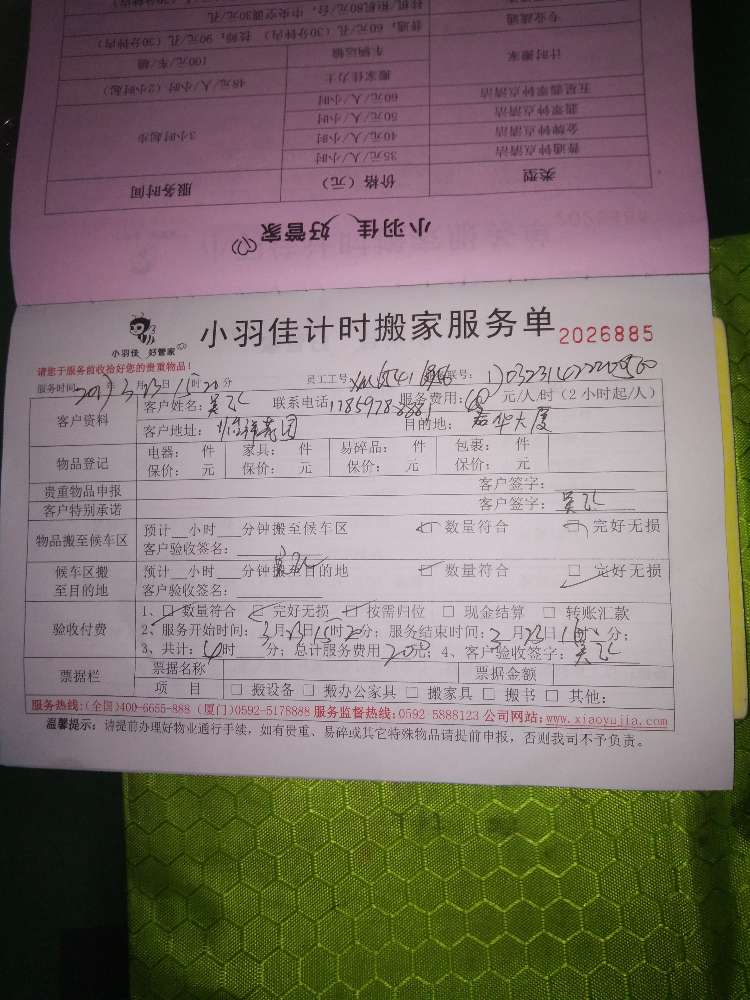 挂机/柜机80元/台，中央空调30元/孔
专业疏通 普通：60元/孔（30分钟内） 技师：90元/孔（30分钟内）
计时搬家 车辆运输 100元/车/趟
搬家佳力士 48元/人/小时（2小时起）
五星翡翠钟点清洁 60元/人/小时
翡翠钟点清洁 50元/人/小时
金牌钟点清洁 40元/人/小时
普通钟点清洁 35元/人/小时 3小时起步
类型 价格（元） 服务时间
小羽佳 好管家
小羽佳 好管家
小羽佳计时搬家服务单 2026885
请您于服务前收拾好您的贵重物品！
服务时间 年3月23日15时20分 员工工号 联号：
客户资料 客户姓名：吴 联系电话 服务费用： 元/人/时（2小时起/人）
客户地址： 目的地：嘉华大厦
物品登记 电器： 件 家具： 件 易碎品： 件 包裹： 件
保价： 元 保价： 元 保价： 元 保价： 元
贵重物品申报 客户签字：
客户特别承诺 客户签字：吴
物品搬至候车区 预计__小时___分钟搬至候车区 □ 数量符合 □ 完好无损
客户验收签名：
候车区搬至目的地 预计__小时___分钟搬至目的地 □ 数量符合 □ 完好无损
客户验收签名：
验收付费 1、□ 数量符合 □ 完好无损 □ 按需归位 □ 现金结算 □ 转账汇款
2、服务开始时间：3月23日15时20分；服务结束时间： 月23日 时 分；
3、共计： 时 分；总计服务费用 元；4、客户验收签字：吴
票据栏 票据名称 票据金额
项 目 □ 搬设备 □ 搬办公家具 □ 搬家具 □ 搬书 □ 其他：
服务热线：(全国)400-6655-888 (厦门)0592-5178888 服务监督热线：0592-5888123 公司网站：www.xiaoyujia.com
温馨提示：请提前办理好物业通行手续，如有贵重、易碎或其它特殊物品请提前申报，否则我司不予负责。